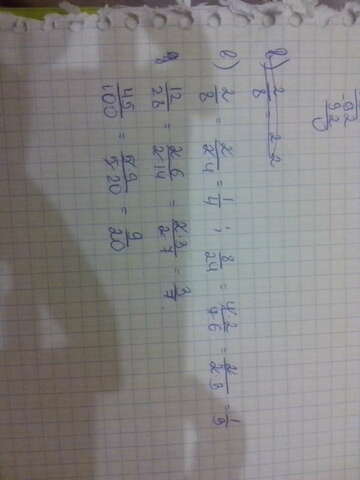 в) 2/8 = 2 2
в) 2/8 = 2/(2·4) = 1/4 ; 8/24 = (4·2)/(4·6) = 2/(2·3) = 1/3
12/28 = (2·6)/(2·14) = (2·3)/(2·7) = 3/7
45/100 = (5·9)/(5·20) = 9/20